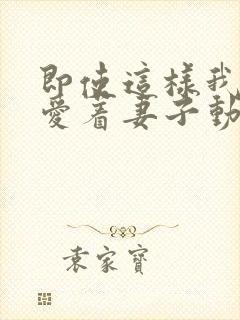 即使這樣我
愛着妻子動
袁家寶